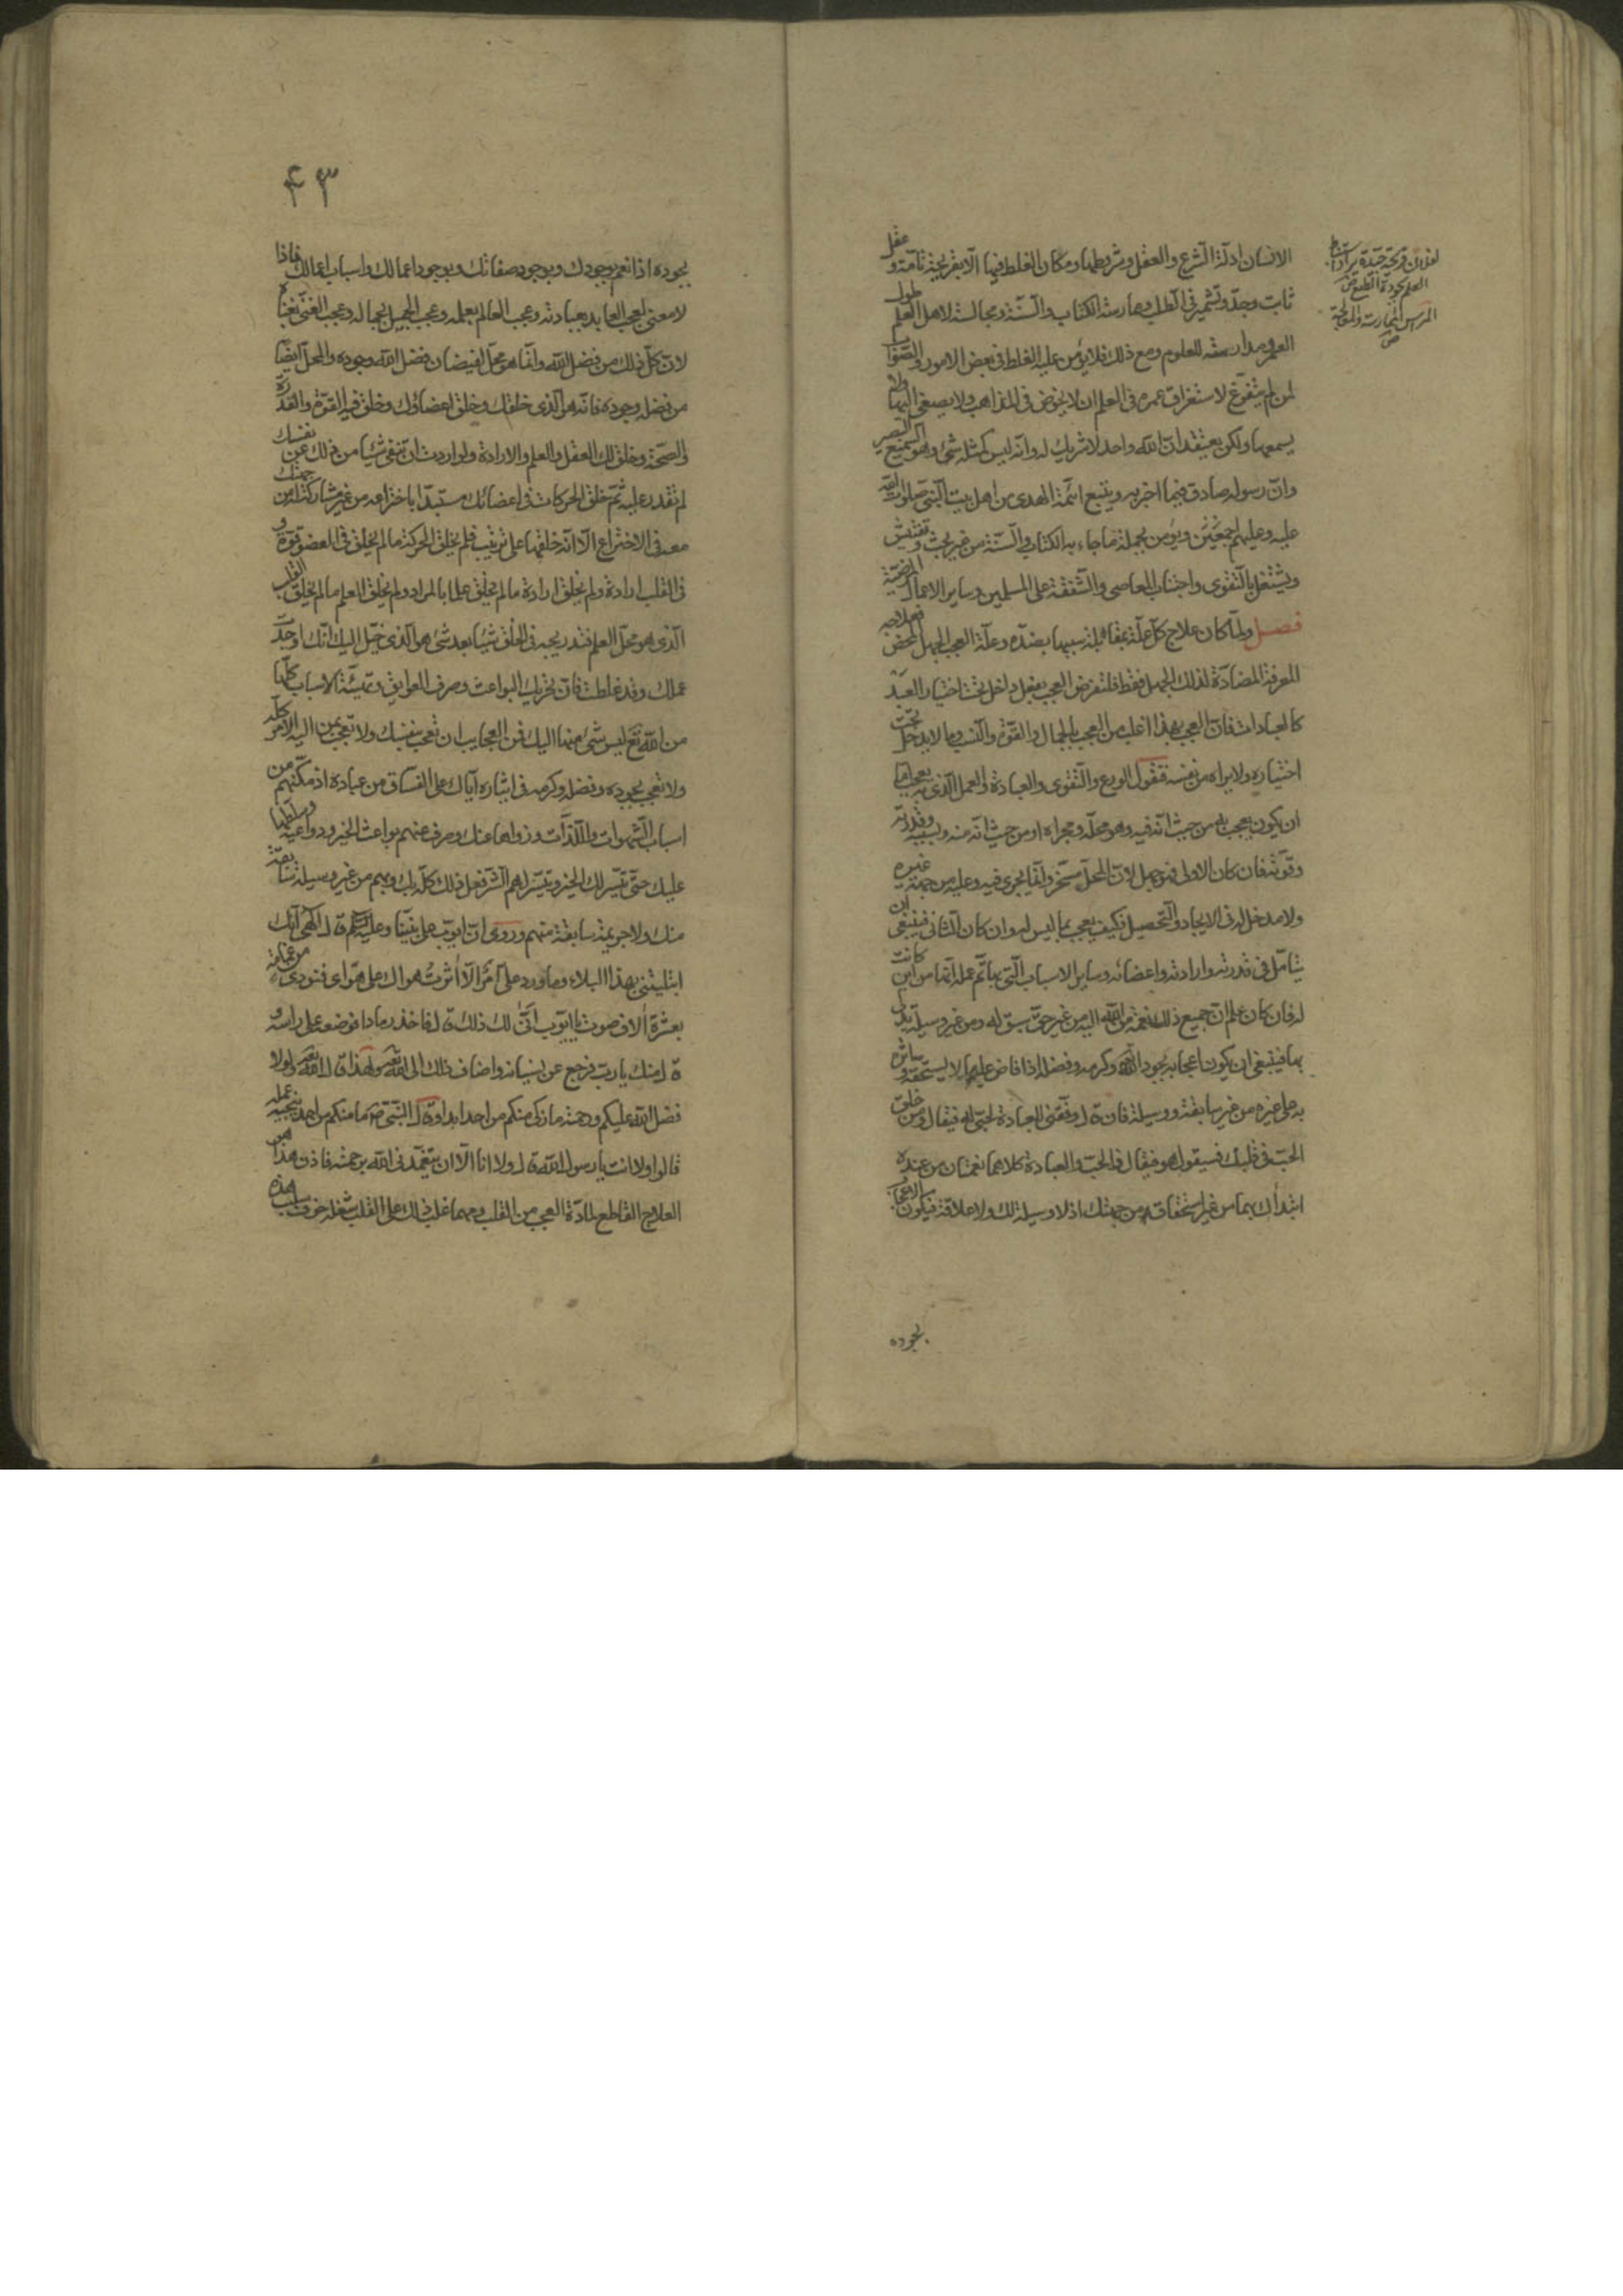 الانسان ادلّة الشرع والعقل وشروطها ومكان الغلط فيها الّا بقريحة تامّة وعقل
ثابت وجدّ وتشمير فى الطلب وممارسة الكتاب والسّنّة ومجالسة لاهل العلم طول
العمر ومدارسته للعلوم ومع ذلك فلا يؤمن عليه الغلط فى بعض الامور والصّواب
لمن لم يتفرّغ لاستغراق عمره فى العلم ان لا يخوض فى المذاهب ولا يصغى اليها ولا
يسمعها ولكن يعتقد انّ الله واحد لا شريك له وانّه ليس كمثله شئ وهو السّميع البصير
وانّ رسوله صادق فيما اخبر به ويتبع ائمّة الهدى من اهل بيت النّبى صلوات الله
عليه وعليهم اجمعين ويؤمن بجملة ما جاء به الكتاب والسّنّة من غير بحث وتفتيش
ويشتغل بالتّقوى واجتناب المعاصى والشّفقة على المسلمين وساير الاعمال المرضيّة
فصل ولمّا كان علاج كلّ علّة بمقابلة سببها بضدّه وعلّة العجب الجهل المحض فعلاجه
المعرفة المضادّة لذلك الجهل فقط فلنفرض العجب بفعل داخل تحت اختيار العبد
كالعبادات فانّ العجب بهذا اغلب من العجب بالجمال والقوّة والنّسب وما لا يدخل تحت
اختياره ولا يراه من نفسه فنقول الورع والتّقوى والعبادة والعمل الّذى به يعجب امّا
ان يكون يعجب به من حيث انّه فيه وهو محلّه ومجراه او من حيث انّه منه وبسببه وقدرته
وقوّته فان كان الاوّل فهو جهل لانّ المحلّ مسخّر وانّما يجرى فيه وعليه من جهة غيره
ولا مدخل له فى الايجاد والتّحصيل فكيف يعجب بما ليس له وان كان الثّانى فينبغى ان
يتامّل فى قدرته وارادته واعضائه وساير الاسباب الّتى بها تمّ عمله انّها من اين كانت
له فان كان علم انّ جميع ذلك نعمة من الله اليه من غير حقّ سبق له ومن غير وسيلة يدلى
بها فينبغى ان يكون اعجابه بجود الله وكرمه وفضله اذ افاض عليه ما لا يستحقّه وآثره
به على غيره من غير سابقة ووسيلة فان قال وفّقنى للعبادة لحبّى له فيقال ومن خلق
الحبّ فى قلبك فسيقول هو فيقال فالحبّ والعبادة كلاهما نعمتان من عنده
ابتدأك بهما من غير استحقاق من جهتك اذ لا وسيلة لك ولا علاقة فيكون الاعجاب
بجوده
العلم بجودة الطبع
٤٣
بجوده اذ انعم بوجودك وبوجود صفاتك وبوجود اعمالك واسباب اعمالك فاذا
لا معنى لعجب العابد بعبادته وعجب العالم بعلمه وعجب الجميل بجماله وعجب الغنىّ بغناه
لانّ كلّ ذلك من فضل الله وانّما هو محلّ لفيضان فضل الله وجوده والمحلّ ايضا
من فضله وجوده فانّه هو الّذى خلقك وخلق اعضاؤك وخلق فيه القوّة والقدرة
والصّحة وخلق لك العقل والعلم والارادة ولو اردت ان تنفى شيئا من ذلك عن نفسك
لم تقدر عليه ثمّ خلق الحركات فى اعضائك مستبدّا باختراعه من غير مشاركة من جهتك
معه فى الاختراع الّا انّه خلقها على ترتيب فلم يخلق الحركة ما لم يخلق فى العضو قوّة و
فى القلب ارادة ولم يخلق ارادة ما لم يخلق علما بالمراد ولم يخلق العلم ما لم يخلق القلب
الّذى هو محلّ العلم فتدريجه فى الخلق شيئا بعد شئ هو الّذى خيّل اليك انّك اوجدت
عملك وقد غلطت فانّ تحريك البواعث وصرف العوايق وتهيئة الاسباب كلّها
من الله تع ليس شئ منها اليك فمن العجايب ان تعجب بنفسك ولا تعجب بمن اليه الامر كلّه
ولا تعجب بجوده وفضله وكرمه فى ايثاره ايّاك على الفسّاق من عباده اذ مكّنهم من
اسباب الشّهوات واللّذّات وزواها عنك وصرف عنهم بواعث الخير ودواعيه وسلّطها
عليك حتّى تيسّر لك الخير وتيسّر لهم الشّر فعل ذلك كلّه بك وبهم من غير وسيلة سابقة
منك ولا جريمة سابقة منهم وروى انّ ايّوب على نبيّنا وعليه السّلام قال الهى انّك
ابتليتنى بهذا البلاء وما ورد علىّ امر الّا آثرت هواك على هواى فنودى من غمامة
بعشرة آلاف صوت يا ايّوب انّى لك ذلك قال فاخذ رمادا فوضعه على راسه و
قال منك يا ربّ فرجع عن نسيانه واضاف ذلك الى الله تعم ولهذا قال الله تعم ولولا
فضل الله عليكم ورحمته ما زكى منكم من احد ابدا وقال النّبى ص ما منكم من احد ينجيه عمله
قالوا ولا انت يا رسول الله قال ولا انا الّا ان يتغمّدنى الله برحمته فاذن هذا هو
العلاج القاطع لمادّة العجب من القلب ومهما غلب ذلك على القلب شغله خوف سلب هذه